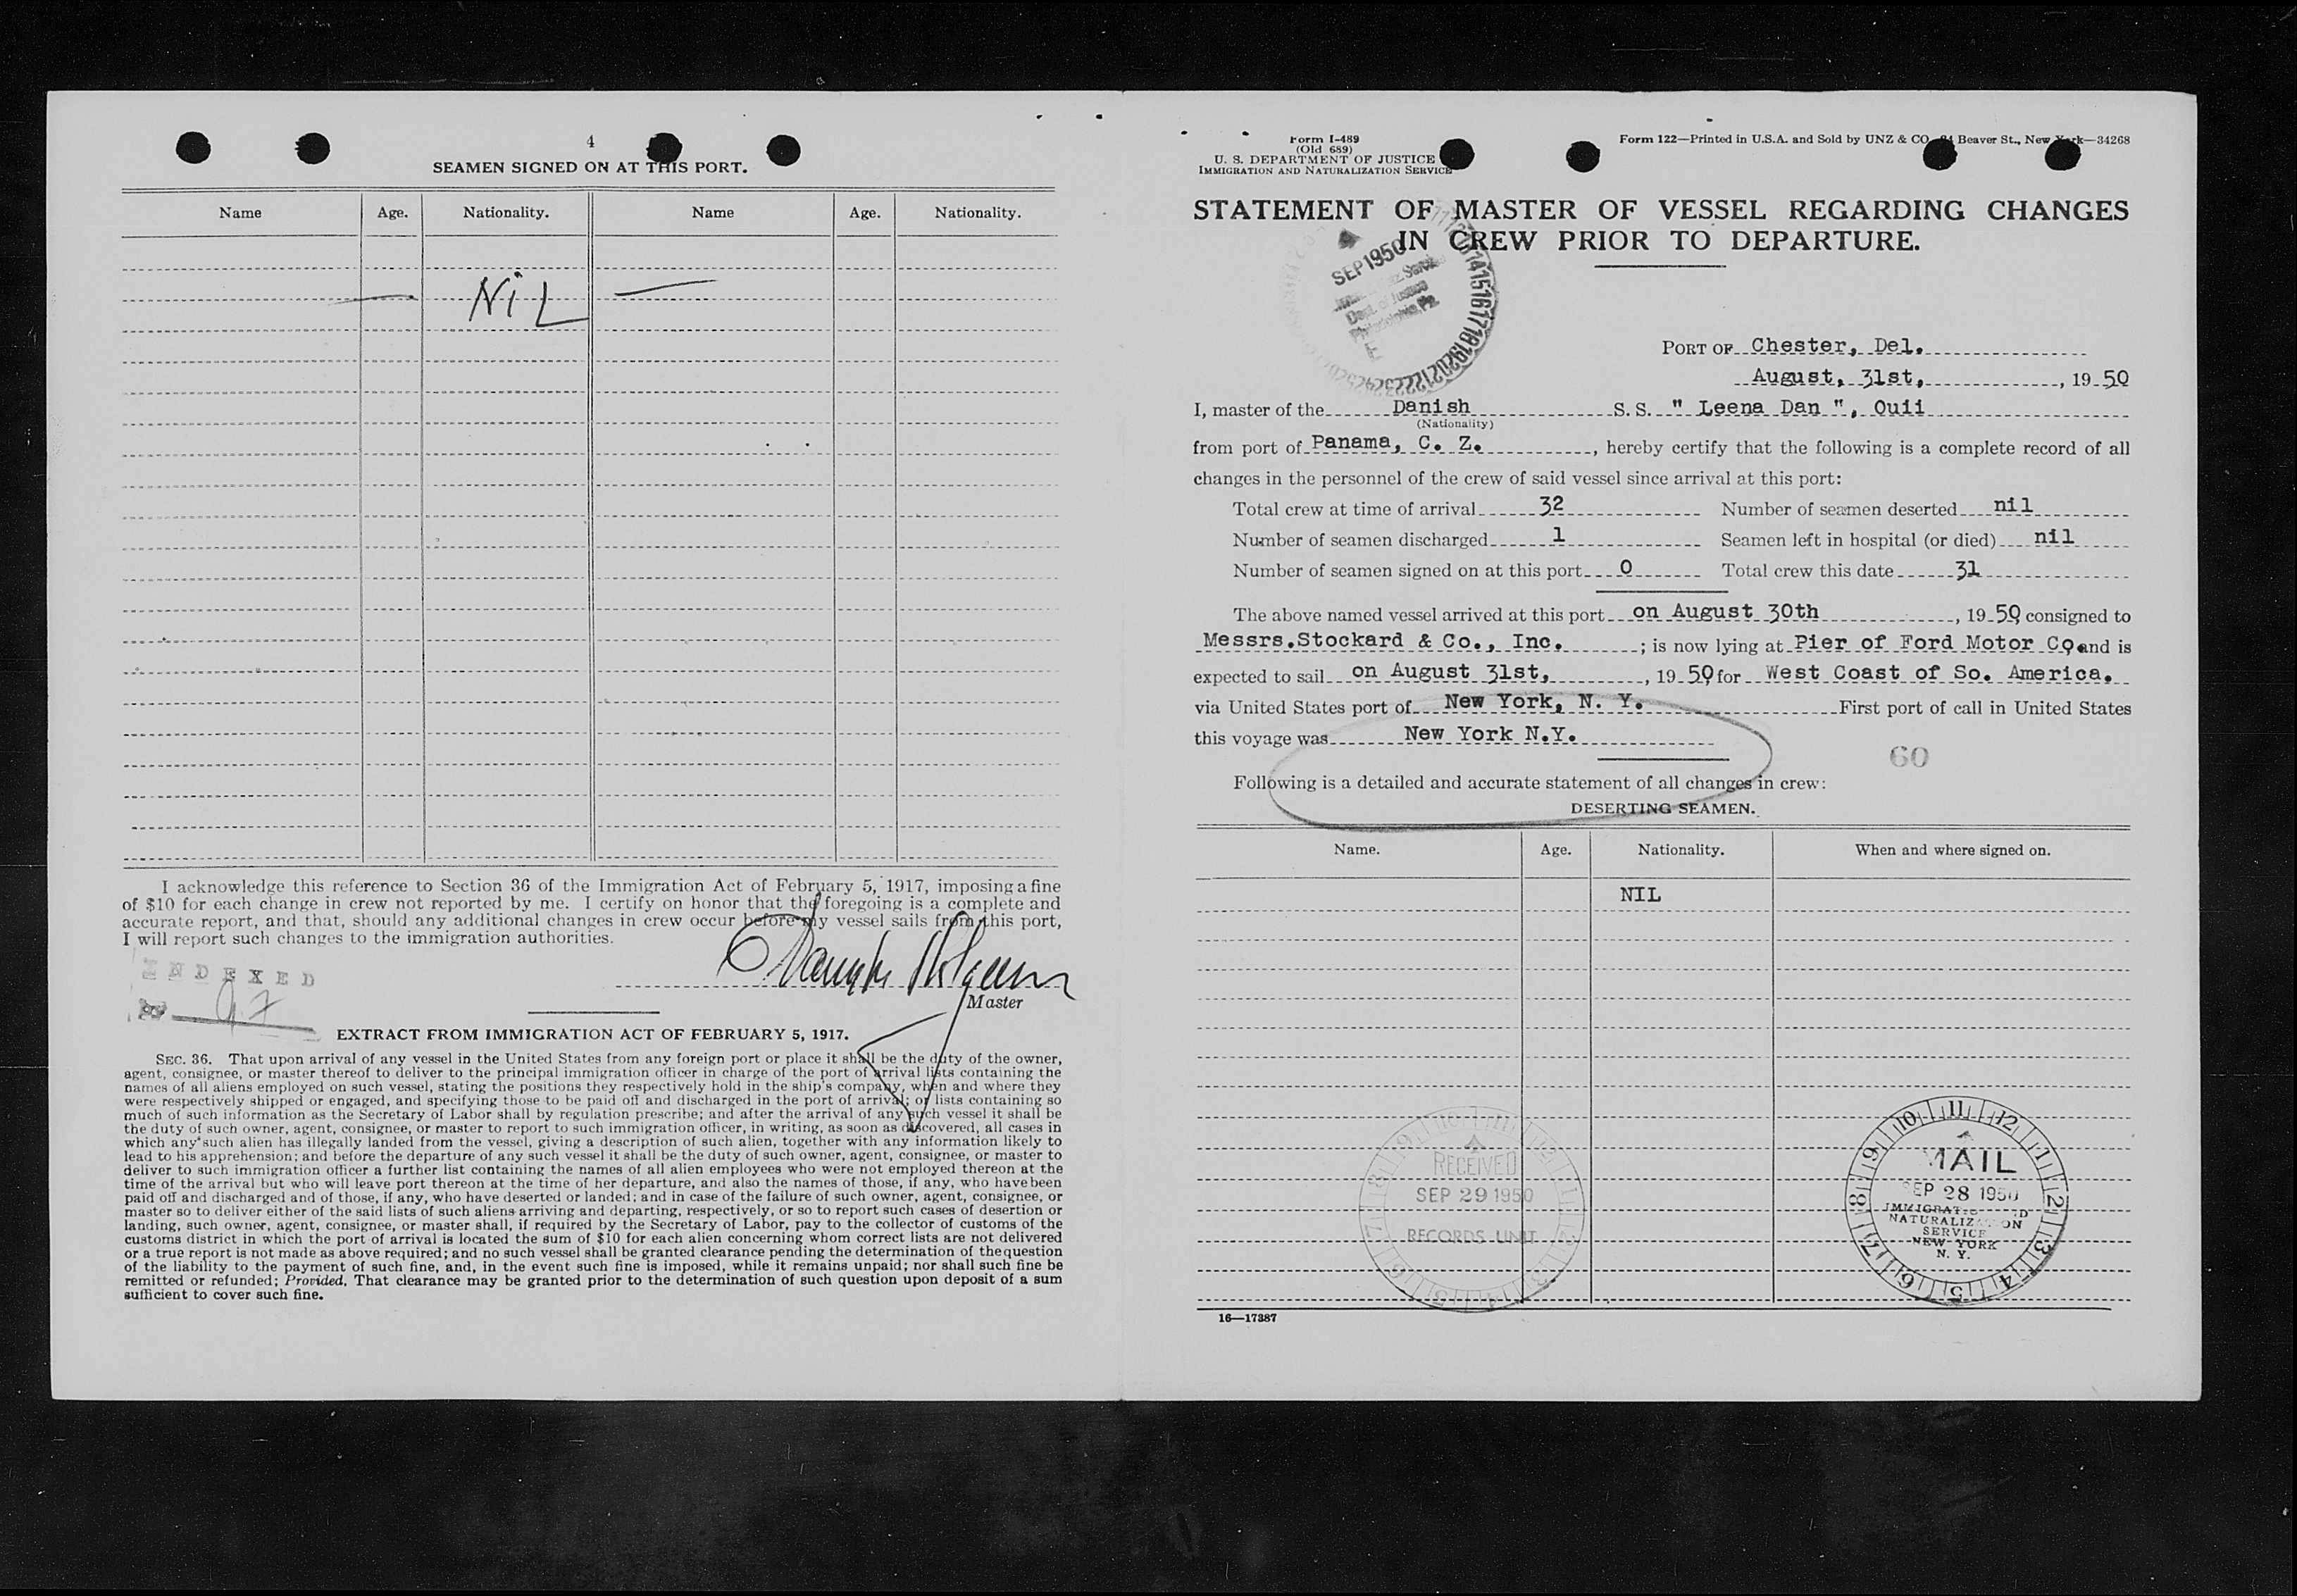 4
SEAMEN SIGNED ON AT THIS PORT.
Name Age. Nationality. Name Age. Nationality.
— NiL —
I acknowledge this reference to Section 36 of the Immigration Act of February 5, 1917, imposing a fine
of $10 for each change in crew not reported by me. I certify on honor that the foregoing is a complete and
accurate report, and that, should any additional changes in crew occur before my vessel sails from this port,
I will report such changes to the immigration authorities.
INDEXED
97
Master
EXTRACT FROM IMMIGRATION ACT OF FEBRUARY 5, 1917.
SEC. 36. That upon arrival of any vessel in the United States from any foreign port or place it shall be the duty of the owner,
agent, consignee, or master thereof to deliver to the principal immigration officer in charge of the port of arrival lists containing the
names of all aliens employed on such vessel, stating the positions they respectively hold in the ship's company, when and where they
were respectively shipped or engaged, and specifying those to be paid off and discharged in the port of arrival; or lists containing so
much of such information as the Secretary of Labor shall by regulation prescribe; and after the arrival of any such vessel it shall be
the duty of such owner, agent, consignee, or master to report to such immigration officer, in writing, as soon as discovered, all cases in
which any such alien has illegally landed from the vessel, giving a description of such alien, together with any information likely to
lead to his apprehension; and before the departure of any such vessel it shall be the duty of such owner, agent, consignee, or master to
deliver to such immigration officer a further list containing the names of all alien employees who were not employed thereon at the
time of the arrival but who will leave port thereon at the time of her departure, and also the names of those, if any, who have been
paid off and discharged and of those, if any, who have deserted or landed; and in case of the failure of such owner, agent, consignee, or
master so to deliver either of the said lists of such aliens arriving and departing, respectively, or so to report such cases of desertion or
landing, such owner, agent, consignee, or master shall, if required by the Secretary of Labor, pay to the collector of customs of the
customs district in which the port of arrival is located the sum of $10 for each alien concerning whom correct lists are not delivered
or a true report is not made as above required; and no such vessel shall be granted clearance pending the determination of the question
of the liability to the payment of such fine, and, in the event such fine is imposed, while it remains unpaid; nor shall such fine be
remitted or refunded; Provided, That clearance may be granted prior to the determination of such question upon deposit of a sum
sufficient to cover such fine.
Form I-489
(Old 689)
U. S. DEPARTMENT OF JUSTICE
IMMIGRATION AND NATURALIZATION SERVICE
Form 122—Printed in U.S.A. and Sold by UNZ & CO. Beaver St., New York—34268
STATEMENT OF MASTER OF VESSEL REGARDING CHANGES
IN CREW PRIOR TO DEPARTURE.
SEP 1950
Dept. of Justice
Philadelphia, Pa.
14 15 16 17 18 19 20 21 22 23 24 25
PORT OF Chester, Del.
August, 31st, , 19 50
I, master of the Danish S. S. " Leena Dan ", Ouii
(Nationality)
from port of Panama, C. Z. , hereby certify that the following is a complete record of all
changes in the personnel of the crew of said vessel since arrival at this port:
Total crew at time of arrival 32 Number of seamen deserted nil
Number of seamen discharged 1 Seamen left in hospital (or died) nil
Number of seamen signed on at this port 0 Total crew this date 31
The above named vessel arrived at this port on August 30th , 19 50 consigned to
Messrs.Stockard & Co., Inc. ; is now lying at Pier of Ford Motor Co and is
expected to sail on August 31st, , 19 50 for West Coast of So. America.
via United States port of New York, N. Y. First port of call in United States
this voyage was New York N.Y.
60
Following is a detailed and accurate statement of all changes in crew:
DESERTING SEAMEN.
Name. Age. Nationality. When and where signed on.
NIL
RECEIVED
SEP 29 1950
RECORDS UNIT
10 11 12 1 2 3 4 5 6 7 8 9
MAIL
SEP 28 1950
IMMIGRATION AND
NATURALIZATION
SERVICE
NEW YORK
N. Y.
16—17387